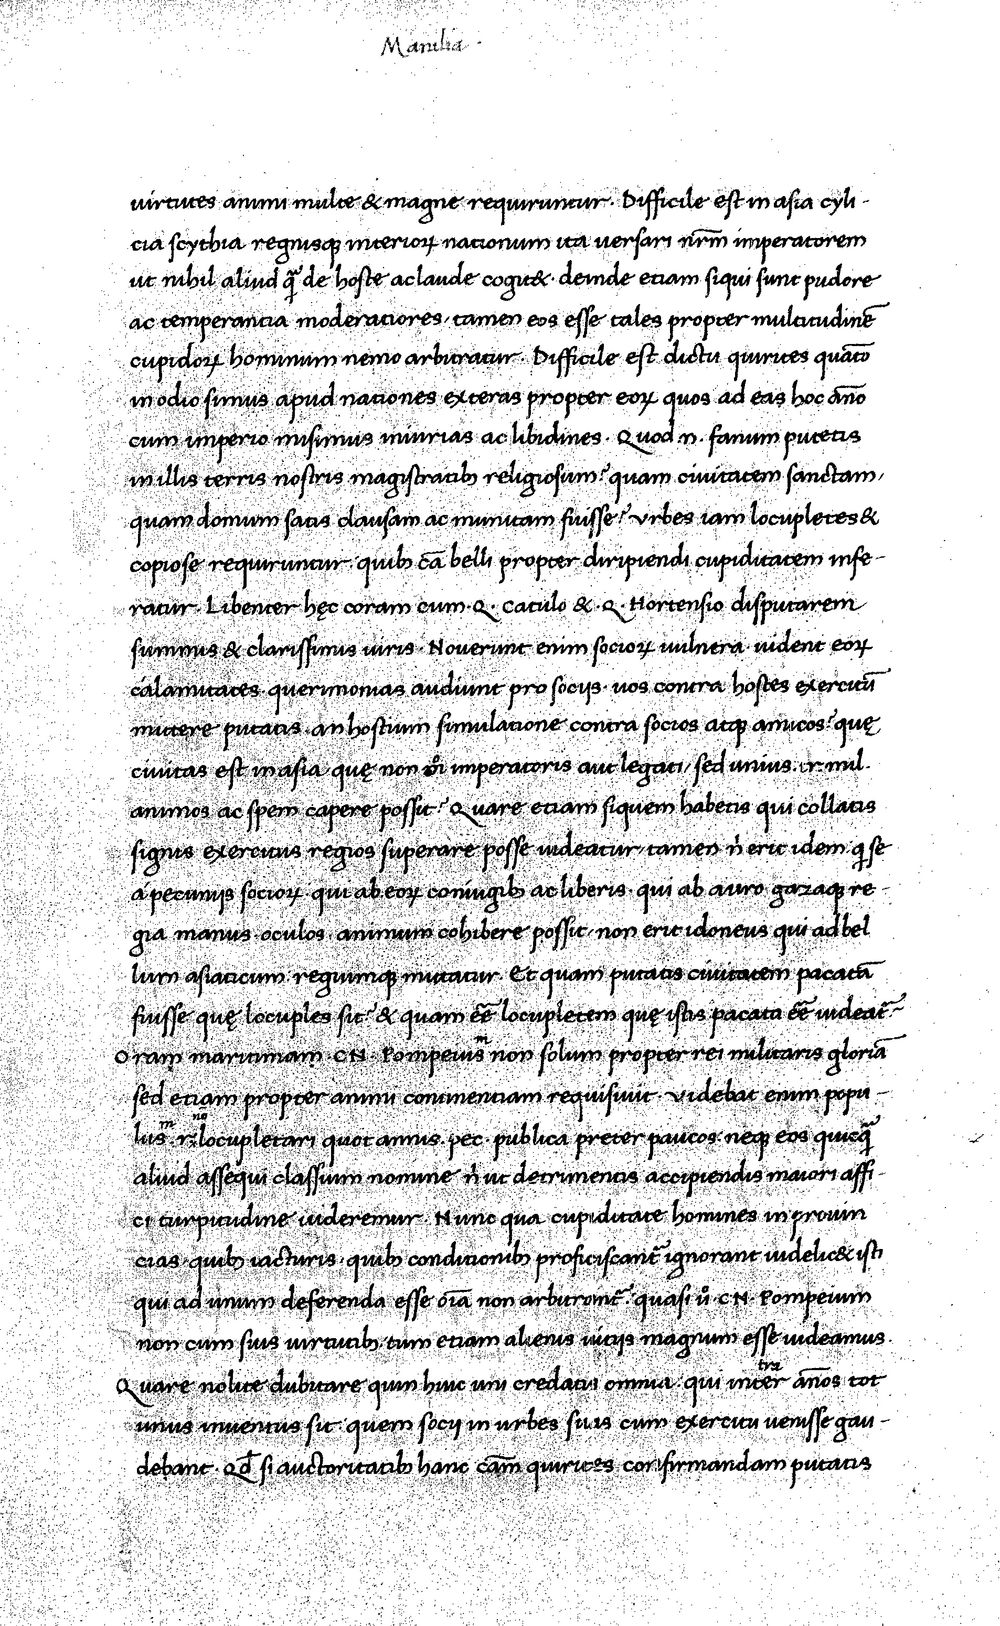 Manilia ·
uirtutes animi multe & magne requiruntur · Difficile est in asia cyli-
cia scythia regnisqꝫ interioꝝ nationum ita uersari nr̄m imperatorem
ut nihil aliud ꝗ̃ de hoste ac laude cogit& · deinde etiam siqui sunt pudore
ac temperantia moderatiores, tamen eos esse tales propter multitudinē
cupidoꝝ hominum nemo arbitratur · Difficile est dictu quirites quāto
in odio simus apud nationes exteras propter eoꝝ quos ad eas hoc āno
cum imperio misimus iniurias ac libidines · Quod .n. fanum putetis
in illis terris nostris magistratibꝫ religiosum? quam ciuitatem sanctam,
quam domum satis clausam ac munitam fuisse? Vrbes iam locupletes &
copiose requiruntur quibꝫ cā belli propter diripiendi cupiditatem infe-
ratur · Libenter hęc coram cum · Q · Catulo & · Q · Hortensio disputarem
summis & clarissimis uiris · Nouerunt enim socioꝝ uulnera uident eoꝝ
calamitates · querimonias audiunt pro sociis · uos contra hostes exercitū
mittere putatis · an hostium simulatione contra socios atqꝫ amicos? quę
ciuitas est in asia quę non imperatoris aut legati, sed unius .tr. mil.
animos ac spem capere possit? Quare etiam siquem habetis qui collatis
signis exercitus regios superare posse uideatur, tamen n̄ erit idem ꝗ se
a pecuniis socioꝝ qui ab eoꝝ coniugibꝫ ac liberis · qui ab auro gazaqꝫ re-
gia manus oculos animum cohibere possit, non erit idoneus qui ad bel
lum asiaticum regiumqꝫ mittatur · Et quam putatis ciuitatem pacatā
fuisse quę locuples sit? & quam eē̄ locupletem quę istis pacata eē̄ uideat᷑?
Oram maritimam · CN · Pompeiusm non solum propter rei militaris gloriā
sed etiam propter animi continentiam requisiuit · Videbat enim popu-
lusm .r. nō locupletari quotannis · pec · publica preter paucos · neqꝫ eos quicꝗ̃
aliud assequi classium nomine n̄ ut detrimentis accipiendis maiori affi-
ci turpitudine uideremur · Nunc qua cupiditate homines in prouin
cias · quibꝫ iacturis · quibꝫ conditionibꝫ proficiscant᷑ ignorant uidelic& isti
qui ad unum deferenda esse oīa non arbitrant᷑? quasi u͛o · CN · Pompeium
non cum suis uirtutibꝫ tum etiam alienis uitiis magnum esse uideamus ·
Quare nolite dubitare quin huic uni credatis omnia · qui inter tra ānos tot
unus inuentus sit · quem socii in urbes suas cum exercitu uenisse gau-
debant · Qd̄ si auctoritatibꝫ hanc cām quirites confirmandam putatis